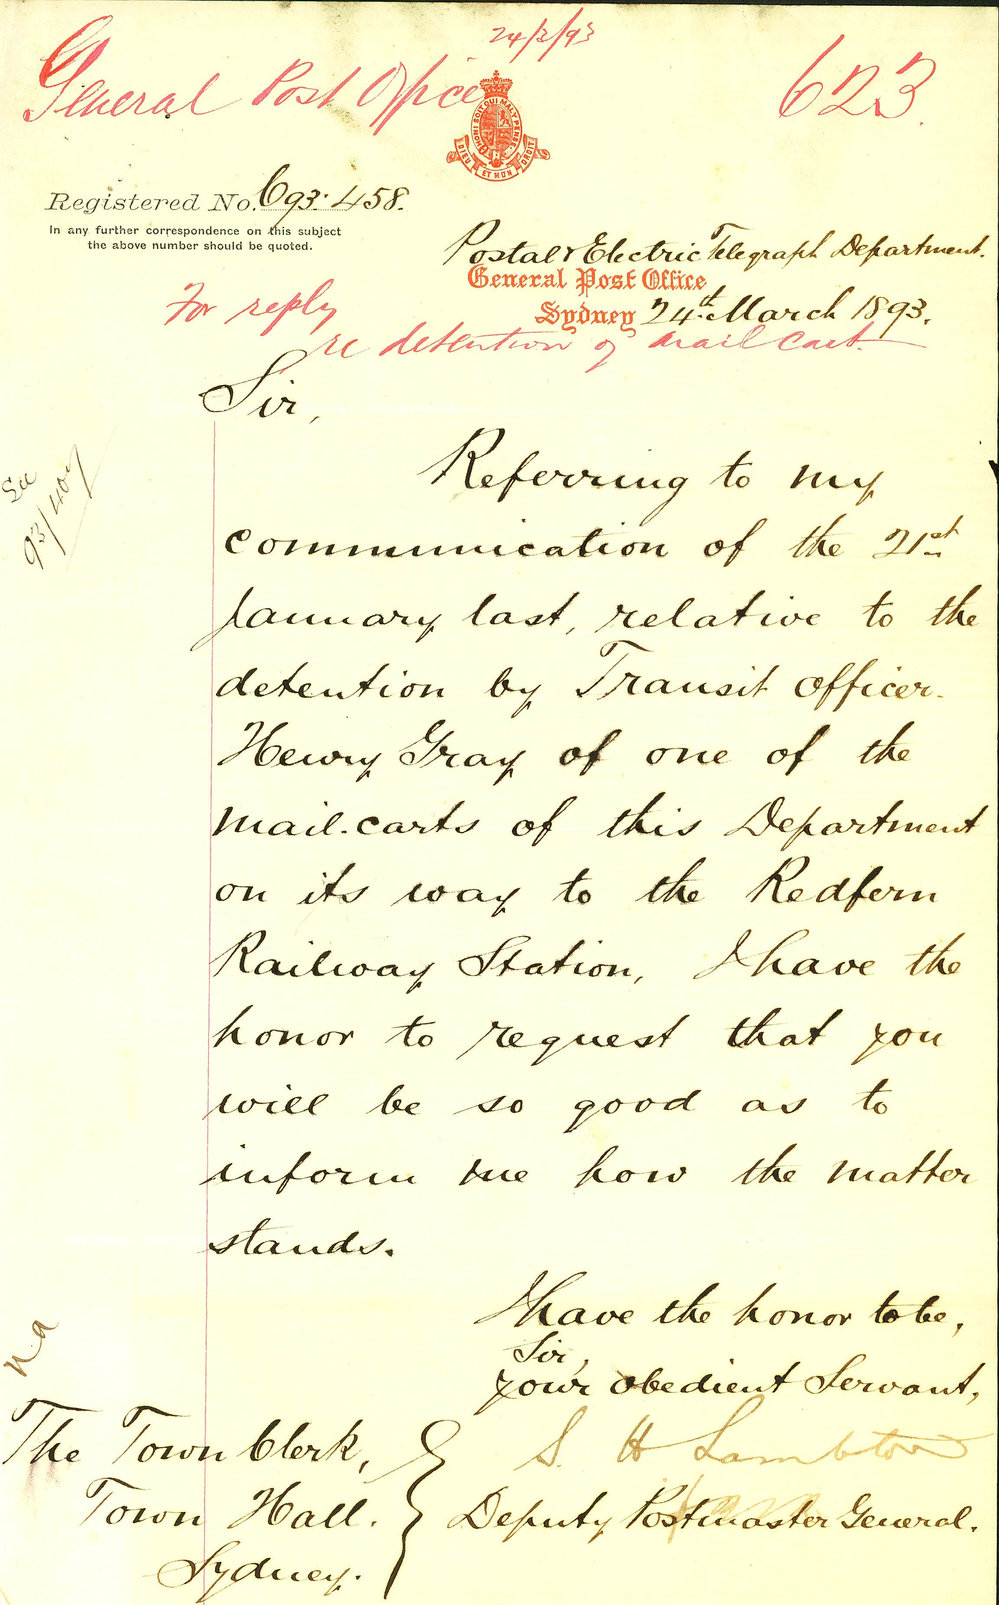 24/3/93
General Post Office
623
HONI SOIT QUI MAL Y PENSE
DIEU ET MON DROIT
Registered No. C93.458.
In any further correspondence on this subject
the above number should be quoted.
Postal & Electric Telegraph Department.
General Post Office
Sydney 24th March 1893.
For reply
re detention of mail cart.
Sir,
See
93/404
Referring to my
communication of the 21st
January last, relative to the
detention by Transit officer
Henry Gray of one of the
mail-carts of this Department
on its way to the Redfern
Railway Station, I have the
honor to request that you
will be so good as to
inform me how the matter
stands.
I have the honor to be,
Sir,
your obedient Servant,
S. H Lambton
Deputy Postmaster General.
The Town Clerk,
Town Hall.
Sydney.